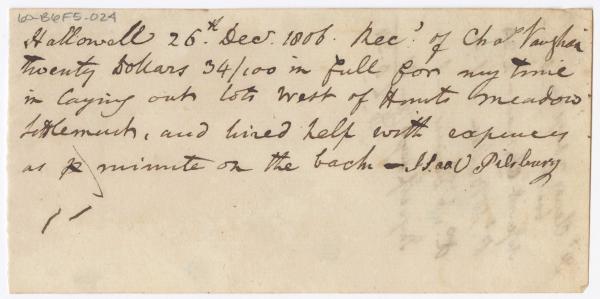 60-B6F5-024
Hallowell 26th Decr. 1806. Recd of Chas Vaughan
twenty Dollars 34/100 in full for my time
in laying out lots west of Hunts meadow
Settlement, and hired help with expences
as p minute on the back - Isaac Pilsbury